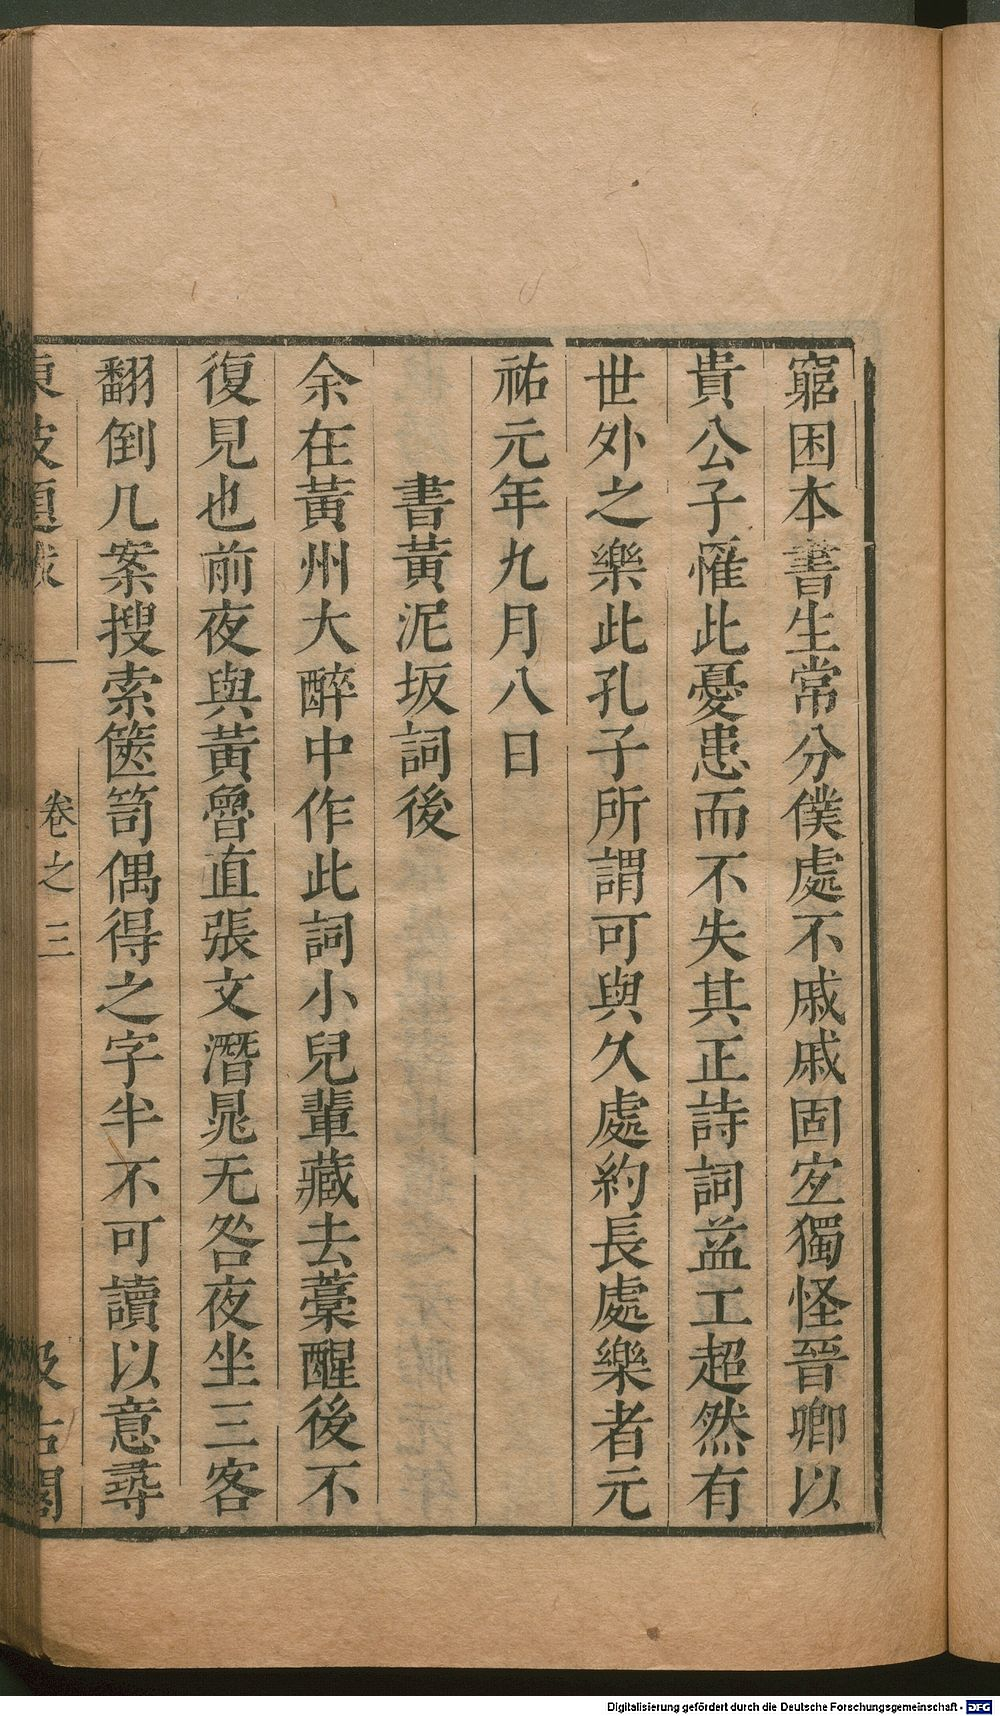 窮困本書生常分僕處不戚戚固宐獨怪晉卿以
貴公子罹此憂患而不失其正詩詞益工超然有
世外之樂此孔子所謂可與久處約長處樂者元
祐元年九月八日
書黃泥坂詞後
余在黃州大醉中作此詞小兒輩藏去藁醒後不
復見也前夜與黃魯直張文潛晁无咎夜坐三客
翻倒几案搜索篋笥偶得之字半不可讀以意尋
東坡題跋 卷之三 汲古閣
Digitalisierung gefördert durch die Deutsche Forschungsgemeinschaft - DFG